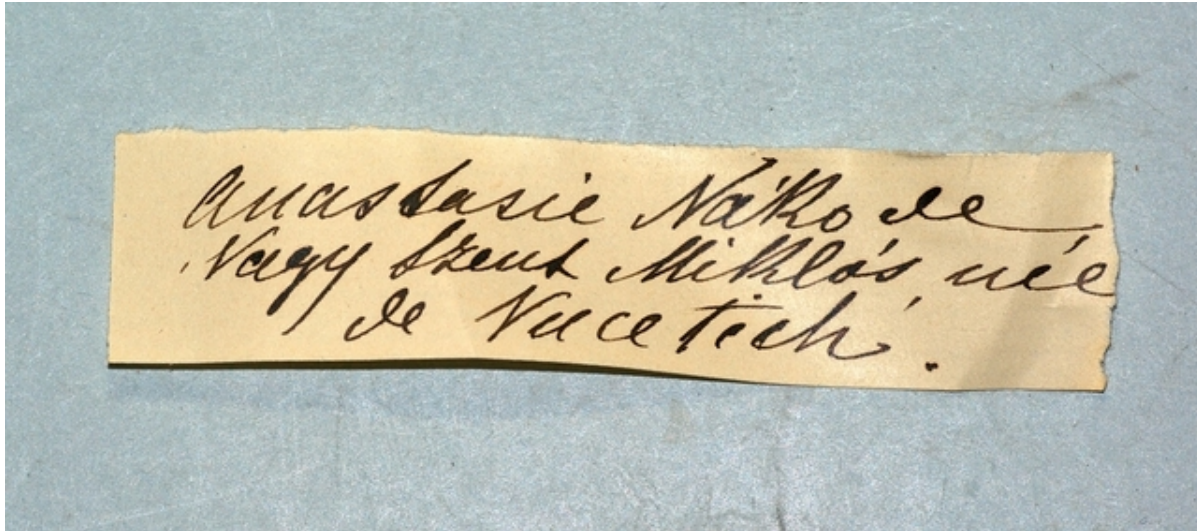 Anastasie Náko de
Nagy Szent Miklós, née
de Vucetich.